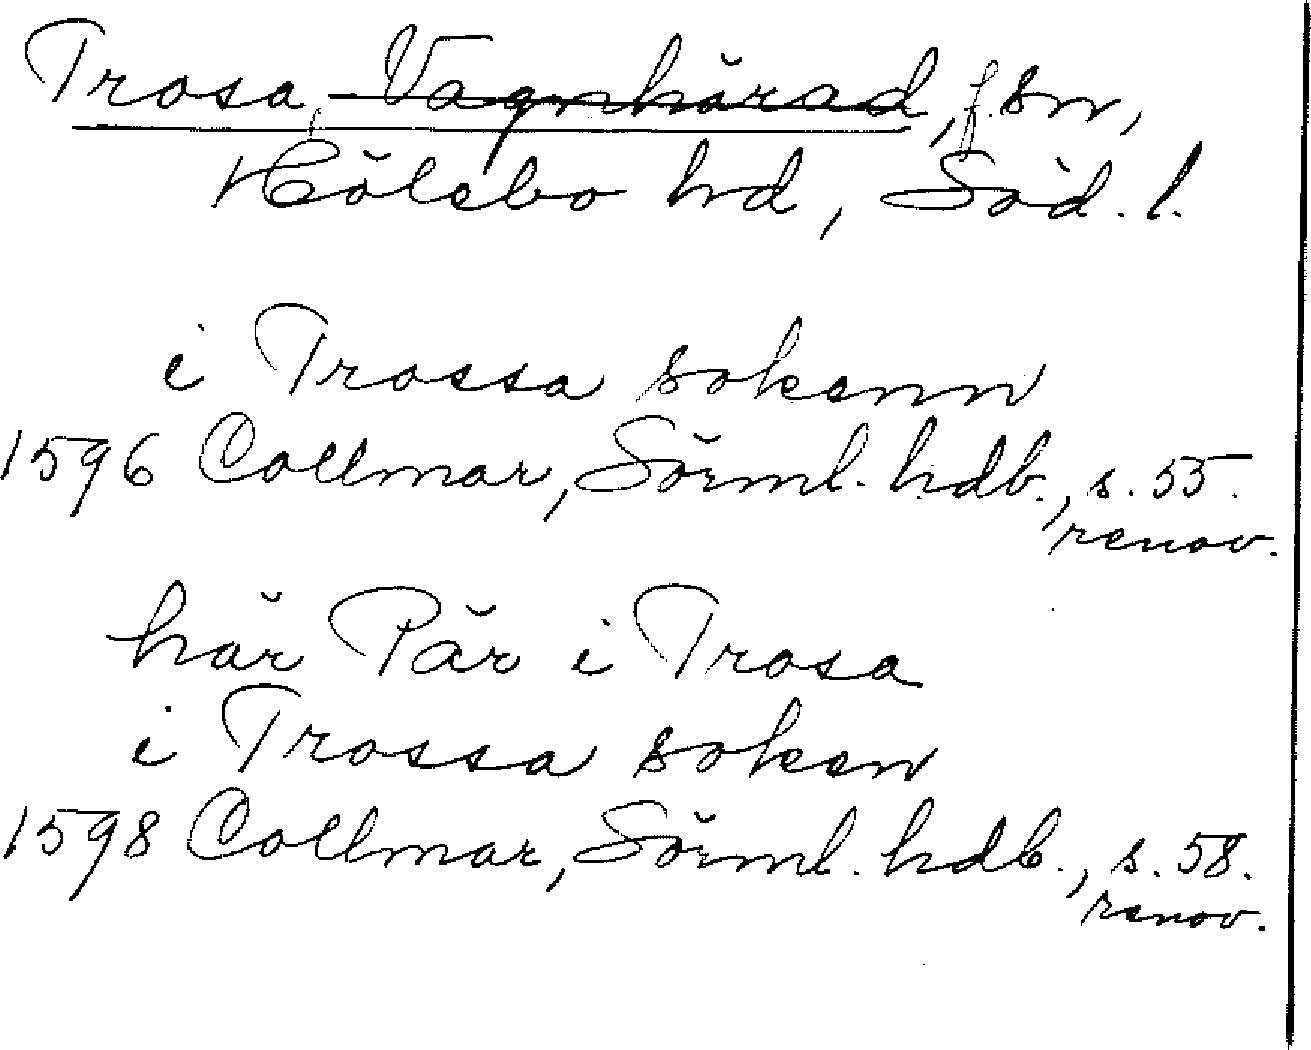 Trosa, -Vagnhärad, f. sn,
Hölebo hd, Söd. l.
i Trossa sokenn
1596 Collmar, Sörml. hdb., s. 55.
renov.
här Pär i Trosa
i Trossa soken
1598 Collmar, Sörml. hdb., s. 58.
renov.